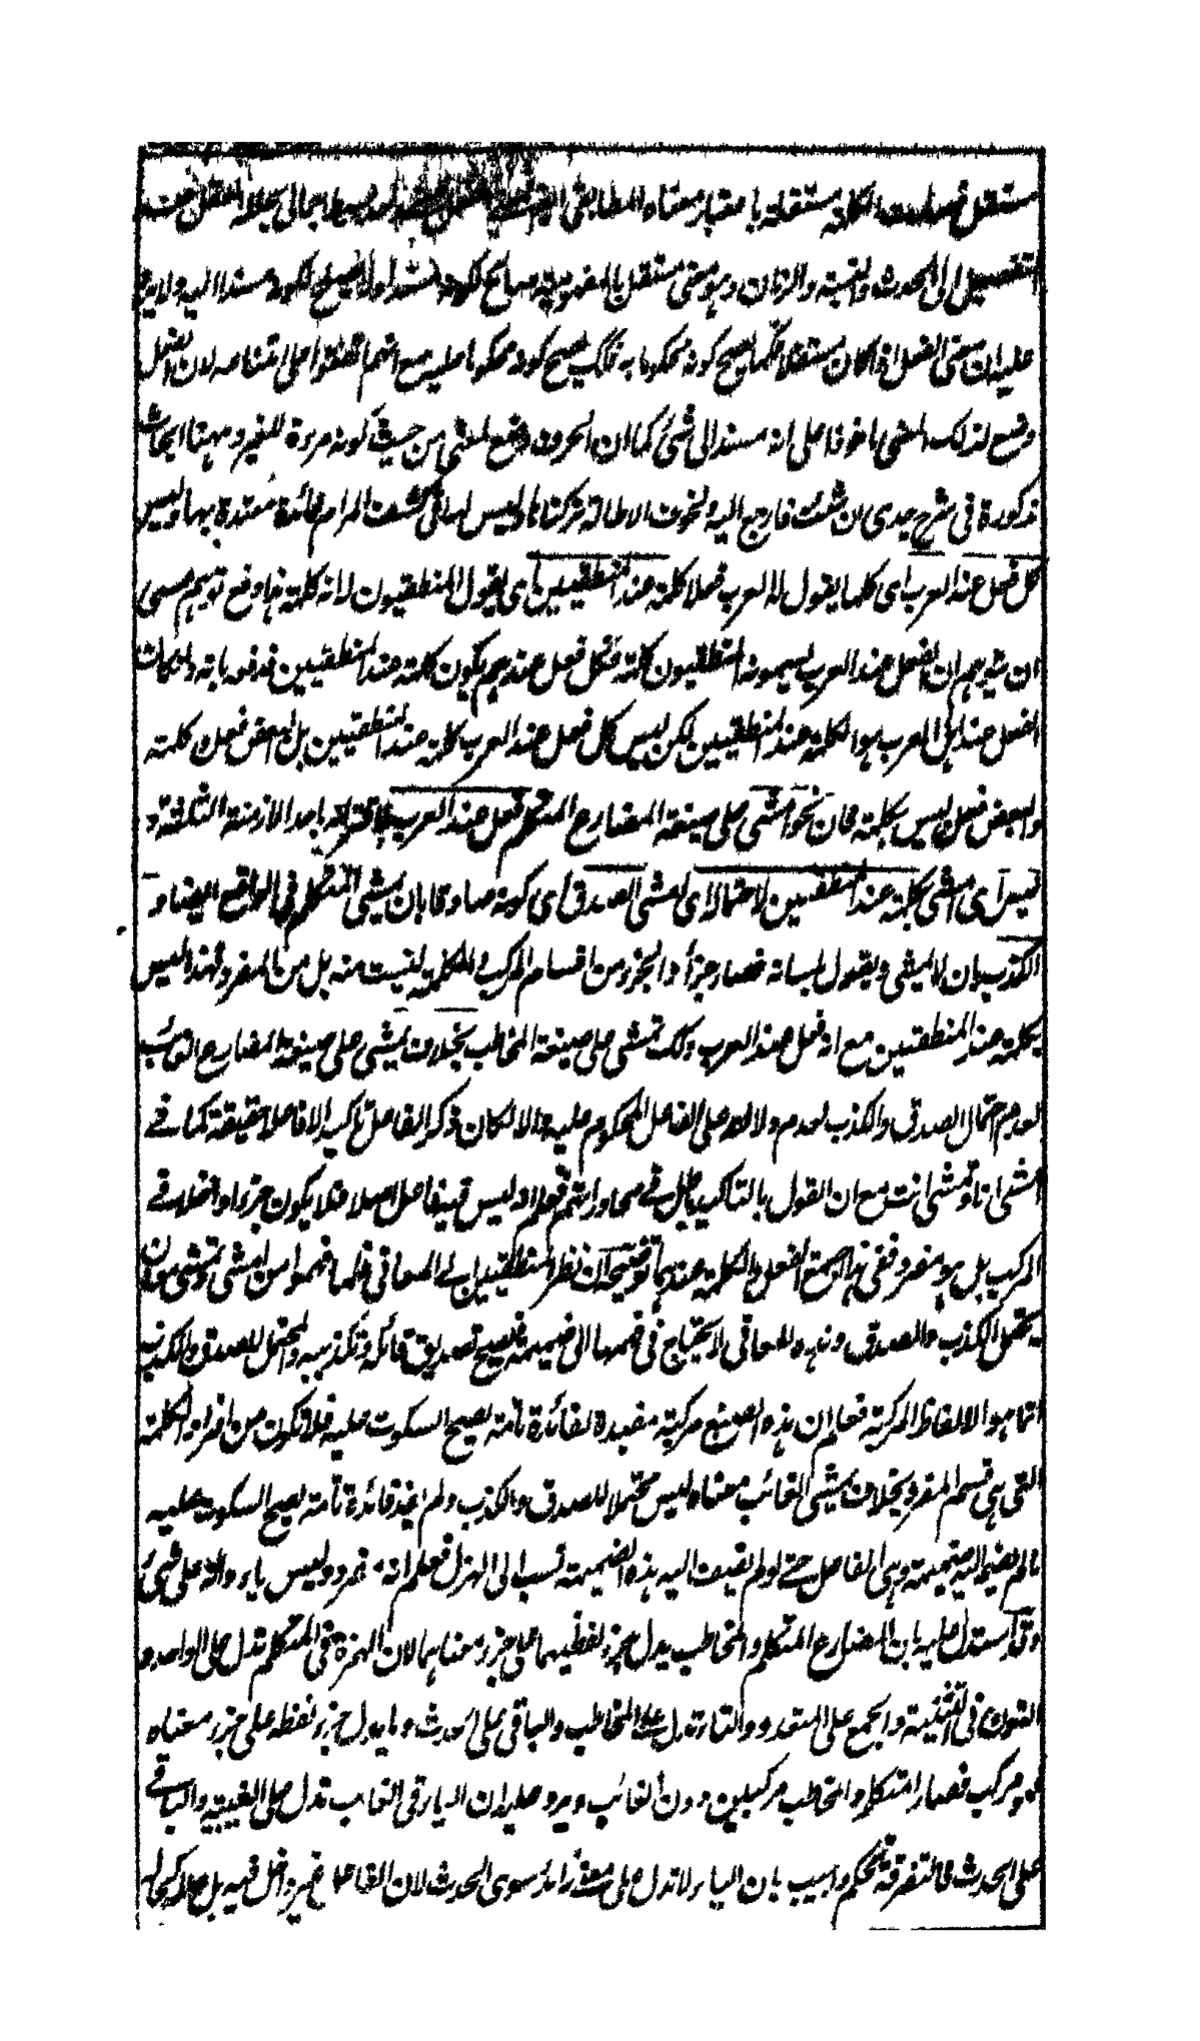 مستقل فصارت الكلمة مستقلة باعتبار معناه المطابقى اجمالى العقل عند
التفصيل الى الحدث والنسبة والزمان وهو معنى مستقل بالمفهومية صالح لكونه مسندا ولا يصلح لكونه مسندا اليه ولا يرد
عليه ان معنى الفعل اذا كان مستقلا فكما يصح كونه محكوما به فكذلك يصح كونه محكوما عليه مع انهم اتفقوا على امتناعه لان الفعل
وضع لذلك المعنى ماخوذا على انه مسند الى شئ كما ان الحرف وضع لمعنى من حيث كونه مرءة للغير وههنا ابحاث
مذكورة فى شرح جدى ان شئت فارجع اليه ولخوف الاطالة تركناها وليس لها فى كشف المرام فائدة معتدة بها وليس
كل فعل عند العرب اى كلما يقول له العرب فعلا كلمة عند المنطقيين اى يقول المنطقيون لانه كلمة هذا وضع توهم عسى
ان يتوهم ان الفعل عند العرب يسمونه المنطقيون كلمة فكل فعل عندهم يكون كلمة عند المنطقيين فدفعه بانه وان كان
الفعل عند اهل العرب هو الكلمة عند المنطقيين لكن ليس كل فعل عند العرب كلمة عند المنطقيين بل بعض فعل كلمة
وبعض فعل ليس بكلمة فان نحو امشى على صيغة المضارع المتكلم فعل عند العرب لاقترانه باحد الازمنة الثلثة و
ليس اى امشى بكلمة عند المنطقيين لاحتماله اى امشى الصدق اى كونه صادقا بان يمشى المتكلم فى الواقع ايضا و
الكذب بان لا يمشى ويقول بلسانه فصار خبرا والخبر من اقسام المركب والكلمة ليست منه بل من المفرد فهذا ليس
بكلمة عند المنطقيين مع انه فعل عند العرب وكذلك تمشى على صيغة المخاطب بخلاف يمشى على صيغة المضارع الغائب
لعدم احتمال الصدق والكذب لعدم دلالته على الفاعل المحكوم عليه والا لكان ذكر الفاعل تاكيدا لا فاعلا حقيقة كما فى
امشى انا وتمشى انت مع ان القول بالتاكيد باطل فى محاوراتهم فعلم انه ليس فيه فاعل اصلا فلا يكون خبرا وداخلا فى
المركب بل هو مفرد ففى هذا اجتمع الفعل والكلمة عندهما توضيحه ان نظر المنطقيين الى المعانى فلما فهموا من امشى وتمشى معان
يحتمل الكذب والصدق وهذه المعانى لا يحتاج فى فهمها الى ضميمة فيصح تصديق قائله وتكذيبه والمحتمل للصدق والكذب
انما هو الالفاظ المركبة فعلم ان هذه الصيغ مركبة مفيدة لفائدة تامة يصح السكوت عليه فلا تكون من افراد الكلمة
التى هى قسم المفرد بخلاف يمشى الغائب معناه ليس محتملا للصدق والكذب ولم يفد فائدة تامة يصح السكوت عليه
مالم يضم اليه ضميمة وهى الفاعل حتى لو لم يضف اليه هذه الضميمة نسب الى الهزل فعلم انه مفرد وليس ياءه دالة على شئ
وقد استدل عليه بان المضارع المتكلم والمخاطب يدل جزء لفظيهما على جزء معناهما لان الهمزة فى المتكلم تدل على الواحد و
النون فى التثنية والجمع على المتعدد والتاء تدل على المخاطب والباقى على الحدث وما يدل جزء لفظه على جزء معناه
فهو مركب فصار المتكلم والمخاطب مركبين دون الغائب ويرد عليه ان الياء فى الغائب تدل على الغيبة والباقى
على الحدث فالتفرقة تحكم واجيب بان الياء لا تدل على معنى زائد سوى الحدث لان الفاعل غير داخل فيه بل صلاحه